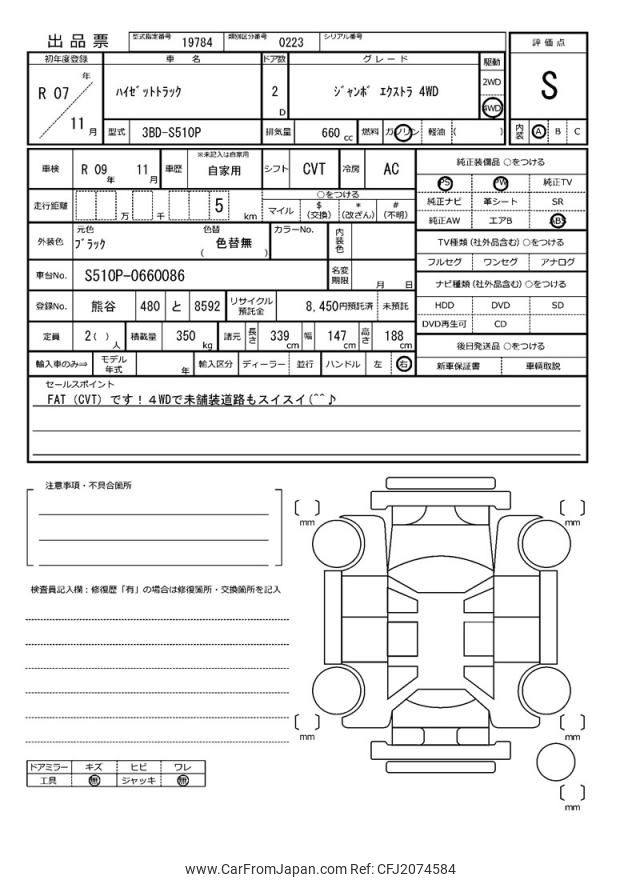 出品票
型式指定番号 19784 類別区分番号 0223 シリアル番号
初年度登録 車名 ドア数 グレード 駆動 評価点
R 07 年 11 月
ハイゼットトラック 2 D ジャンボ エクストラ 4WD
2WD
4WD
S
型式 3BD-S510P 排気量 660 cc 燃料 ガソリン 軽油 ( ) 内装 A B C
車検 R 09 年 11 月 車歴 ※未記入は自家用 自家用 シフト CVT 冷房 AC
純正装備品 ○をつける
PS PW 純正TV
純正ナビ 革シート SR
純正AW エアB ABS
走行距離 万 千 5 km
○をつける
マイル $(交換) *(改ざん) #(不明)
外装色 元色 ブラック 色替 ( 色替無 ) カラーNo. 内装色
TV種類 (社外品含む) ○をつける
フルセグ ワンセグ アナログ
車台No. S510P-0660086 名変期限 月 日
ナビ種類 (社外品含む) ○をつける
HDD DVD SD
DVD再生可 CD
登録No. 熊谷 480 と 8592 リサイクル預託金 8,450円預託済 未預託
定員 2( ) 人 積載量 350 kg 諸元 長さ 339 cm 幅 147 cm 高さ 188 cm
後日発送品 ○をつける
新車保証書 車輌取説
輸入車のみ⇒ モデル年式 年 輸入区分 ディーラー 並行 ハンドル 左 右
セールスポイント
FAT (CVT) です！４WDで未舗装道路もスイスイ(^^♪
注意事項・不具合箇所
検査員記入欄：修復歴「有」の場合は修復箇所・交換箇所を記入
[ ] mm
[ ] mm
[ ] mm
[ ] mm
[ ] mm
ドアミラー キズ ヒビ ワレ
工具 無 ジャッキ 無
www.CarFromJapan.com Ref: CFJ2074584